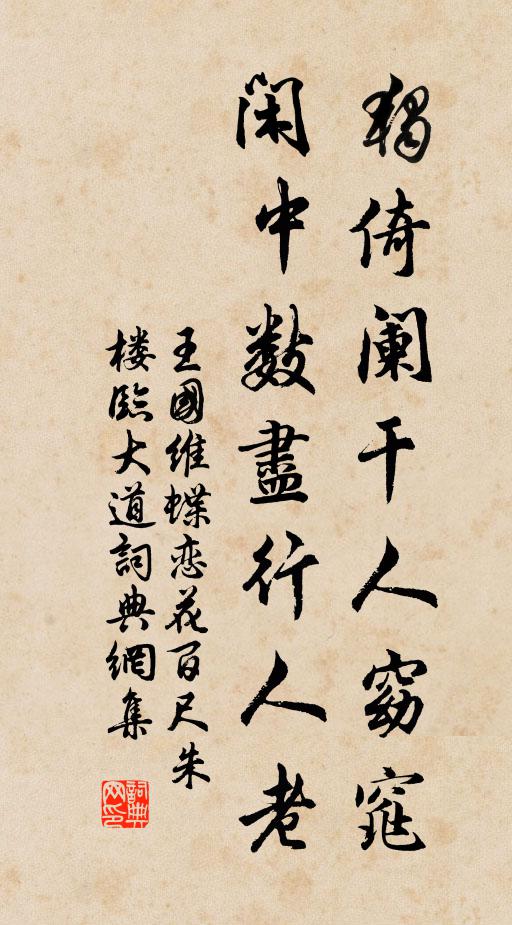 獨倚闌干人窈窕
閑中數盡行人老
王國維蝶恋花百尺朱
楼臨大道詞典網集
詞典网印